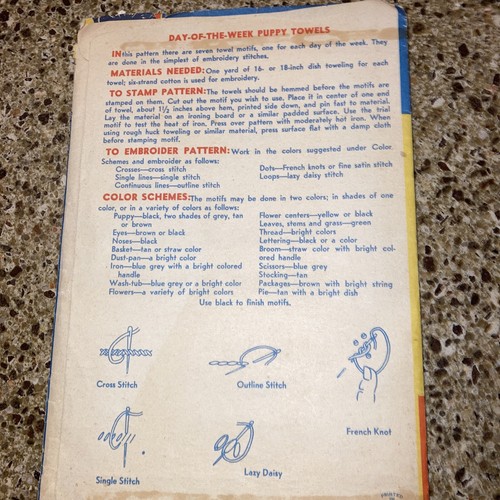 DAY-OF-THE-WEEK PUPPY TOWELS
IN this pattern there are seven towel motifs, one for each day of the week. They
are done in the simplest of embroidery stitches.
MATERIALS NEEDED: One yard of 16- or 18-inch dish toweling for each
towel; six-strand cotton is used for embroidery.
TO STAMP PATTERN: The towels should be hemmed before the motifs are
stamped on them. Cut out the motif you wish to use. Place it in center of one end
of towel, about 1½ inches above hem, printed side down, and pin fast to material.
Lay the material on an ironing board or a similar padded surface. Use the trial
motif to test the heat of iron. Press over pattern with moderately hot iron. When
using rough huck toweling or similar material, press surface flat with a damp cloth
before stamping motif.
TO EMBROIDER PATTERN: Work in the colors suggested under Color
Schemes and embroider as follows:
Crosses—cross stitch
Single lines—single stitch
Continuous lines—outline stitch
Dots—French knots or fine satin stitch
Loops—lazy daisy stitch
COLOR SCHEMES: The motifs may be done in two colors; in shades of one
color, or in a variety of colors as follows:
Puppy—black, two shades of grey, tan
or brown
Eyes—brown or black
Noses—black
Basket—tan or straw color
Dust-pan—a bright color
Iron—blue grey with a bright colored
handle
Wash-tub—blue grey or a bright color
Flowers—a variety of bright colors
Flower centers—yellow or black
Leaves, stems and grass—green
Thread—bright colors
Lettering—black or a color
Broom—straw color with bright col-
ored handle
Scissors—blue grey
Stocking—tan
Packages—brown with bright string
Pie—tan with a bright dish
Use black to finish motifs.
Cross Stitch
Outline Stitch
French Knot
Single Stitch
Lazy Daisy
PRINTED